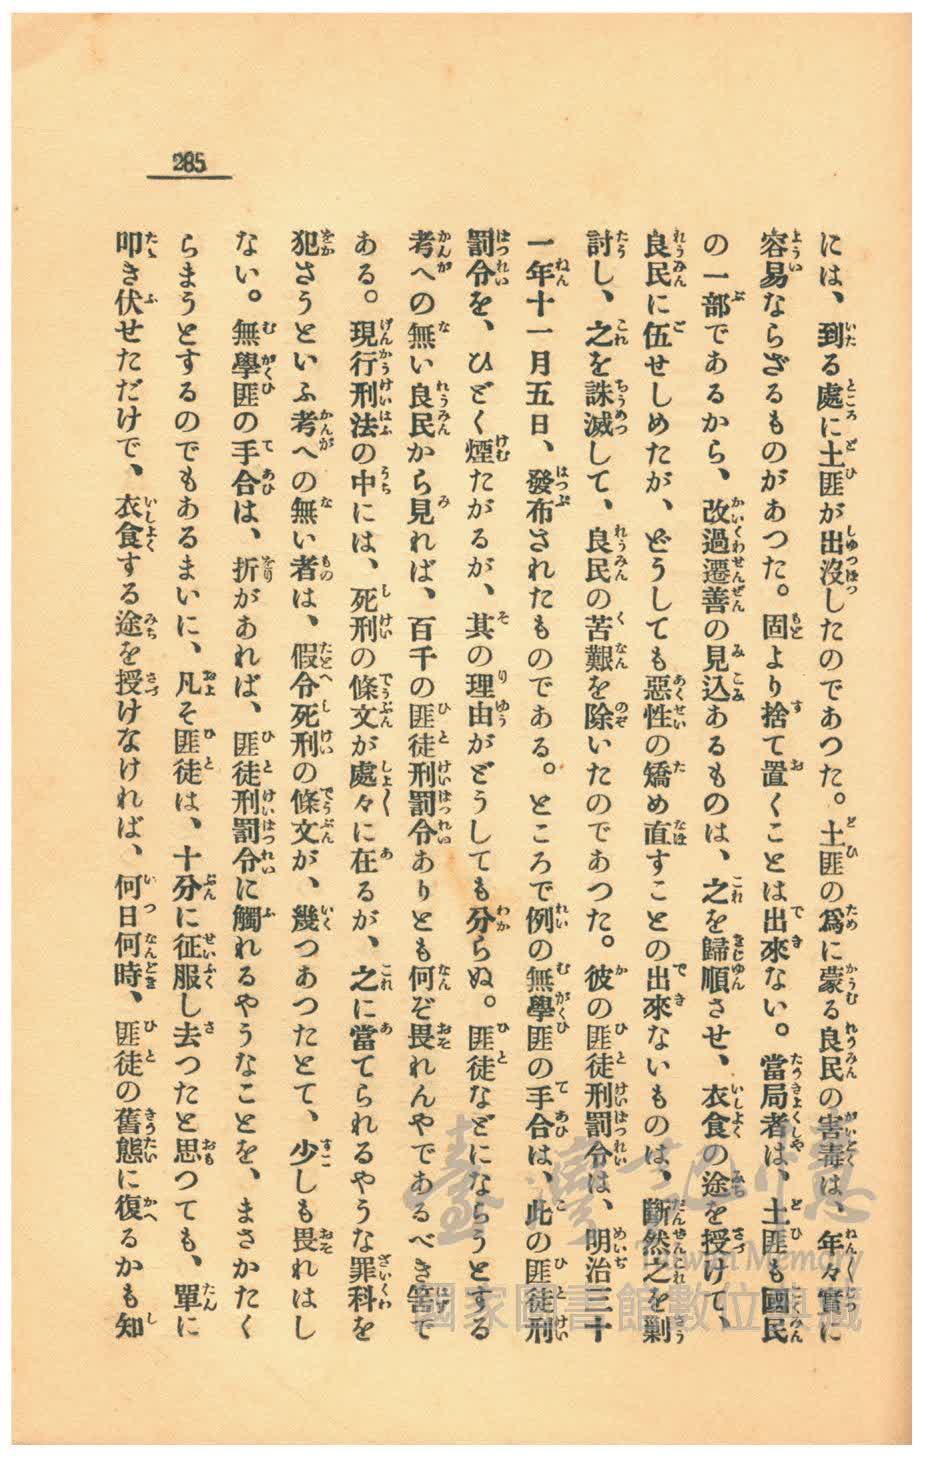 285
には、到る處に土匪が出沒したのであつた。土匪の爲に蒙る良民の害毒は、年々實に
容易ならざるものがあつた。固より捨て置くことは出來ない。當局者は、土匪も國民
の一部であるから、改過遷善の見込あるものは、之を歸順させ、衣食の途を授けて、
良民に伍せしめたが、どうしても惡性の矯め直すことの出來ないものは、斷然之を剿
討し、之を誅滅して、良民の苦艱を除いたのであつた。彼の匪徒刑罰令は、明治三十
一年十一月五日、發布されたものである。ところで例の無學匪の手合は、此の匪徒刑
罰令を、ひどく煙たがるが、其の理由がどうしても分らぬ。匪徒などにならうとする
考への無い良民から見れば、百千の匪徒刑罰令ありとも何ぞ畏れんやであるべき筈で
ある。現行刑法の中には、死刑の條文が處々に在るが、之に當てられるやうな罪科を
犯さうといふ考への無い者は、假令死刑の條文が、幾つあつたとて、少しも畏れはし
ない。無學匪の手合は、折があれば、匪徒刑罰令に觸れるやうなことを、まさかたく
らまうとするのでもあるまいに、凡そ匪徒は、十分に征服し去つたと思つても、單に
叩き伏せただけで、衣食する途を授けなければ、何日何時、匪徒の舊態に復るかも知
臺灣記憶
Taiwan Memory
國家圖書館數位典藏